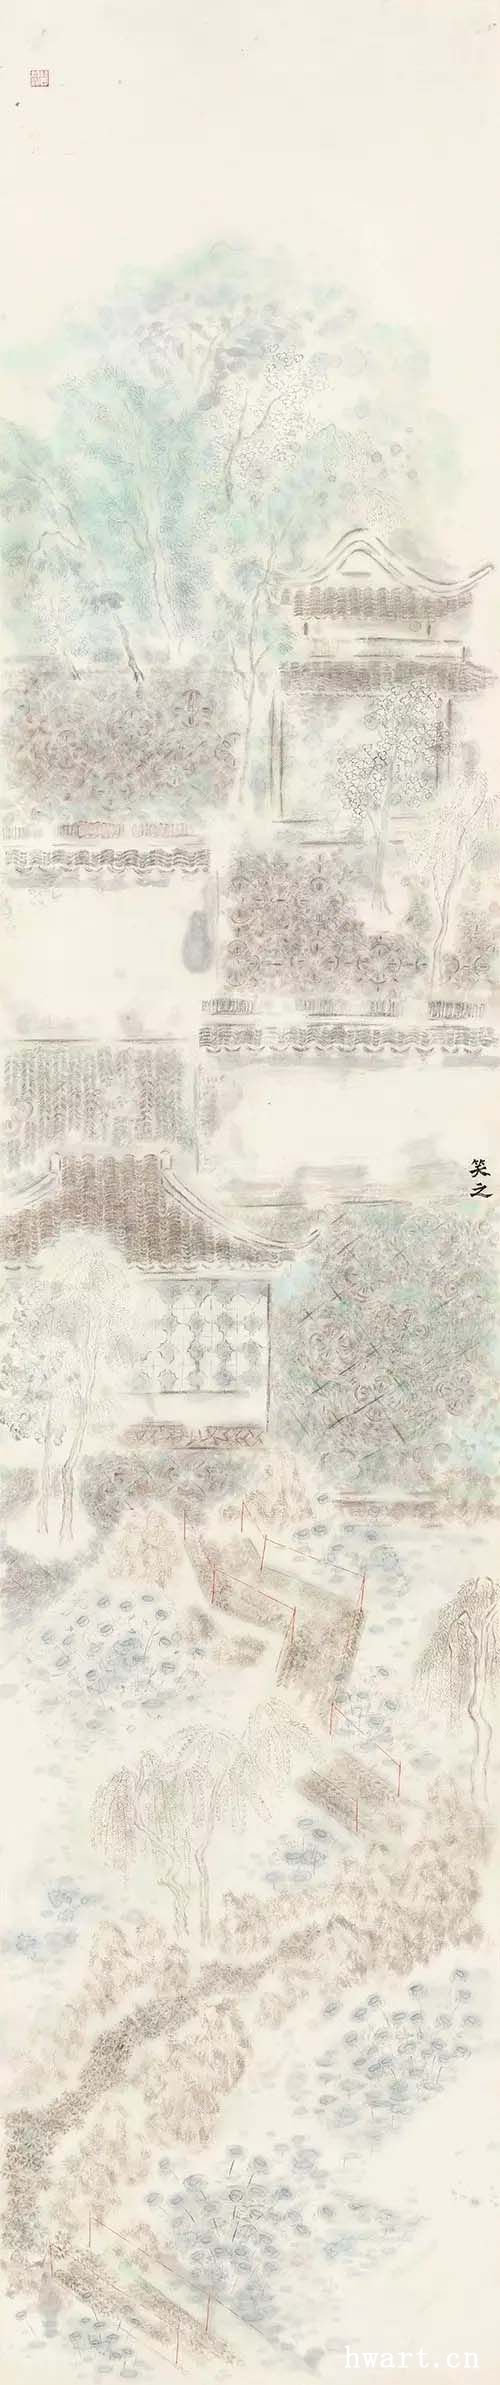 笑之
hwart.cn